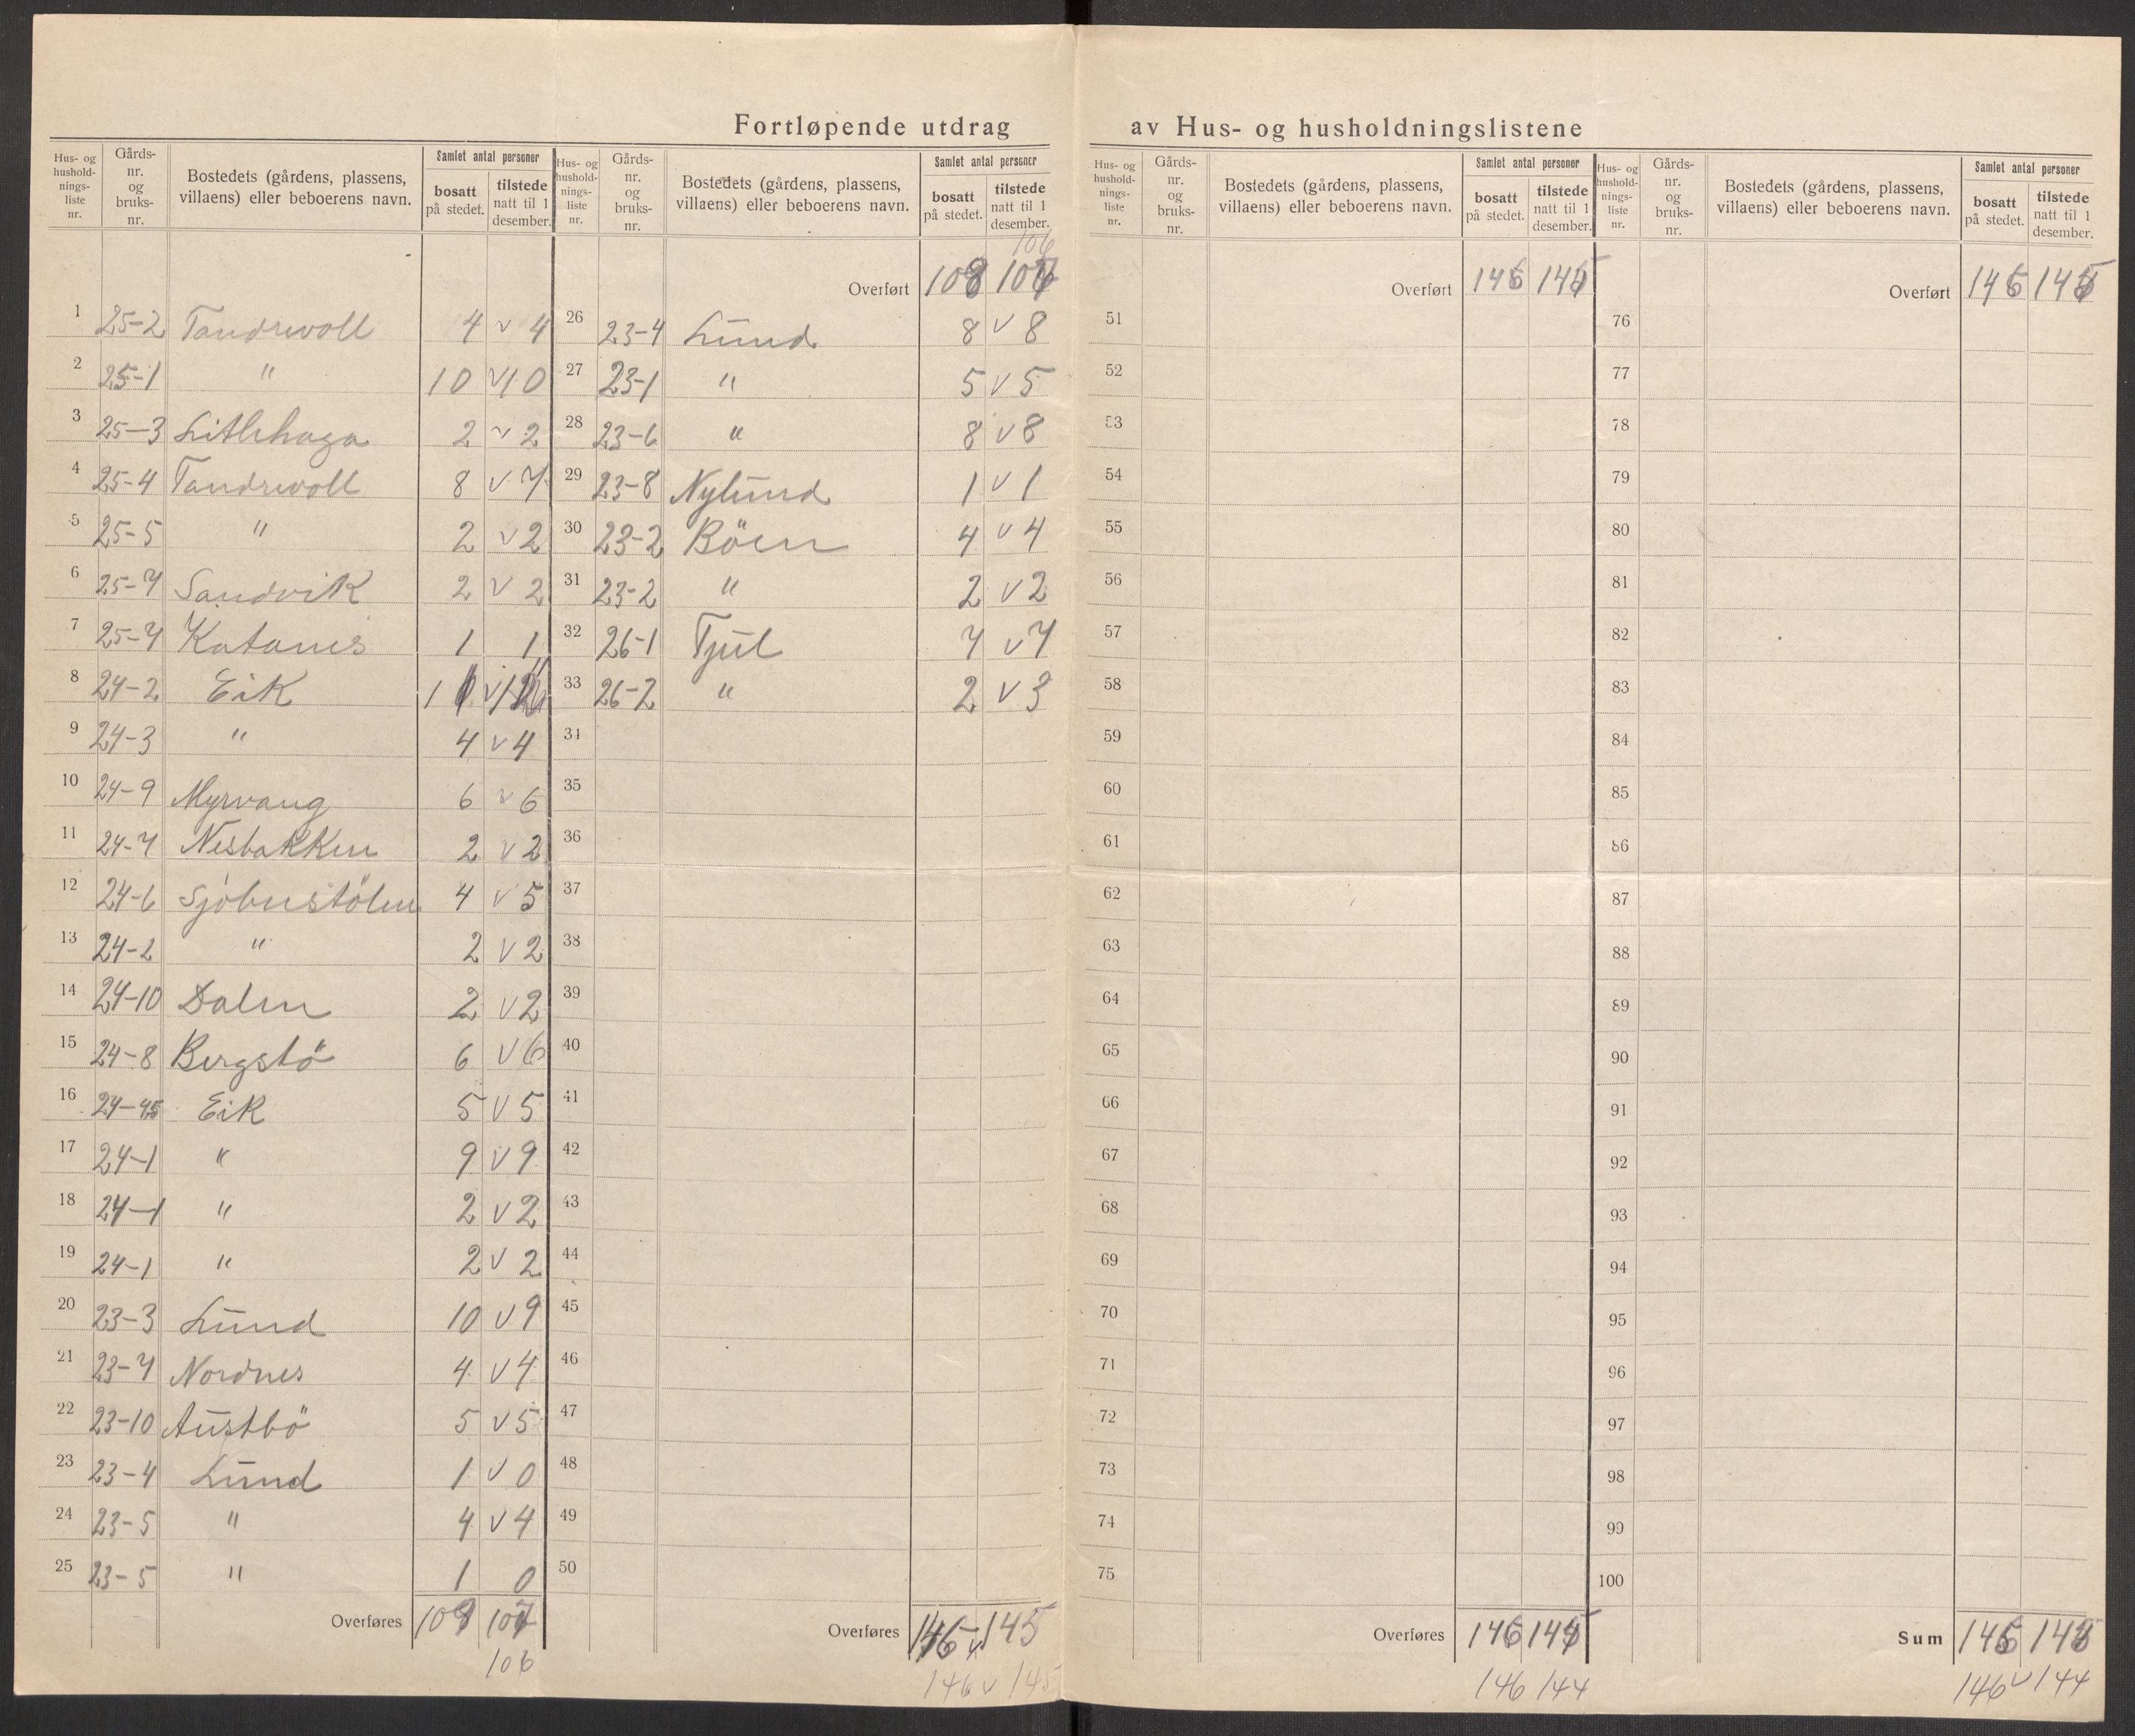 Fortløpende utdrag av Hus- og husholdningslistene
Hus- og hushold-nings-liste nr. Gårds-nr. og bruks-nr. Bostedets (gårdens, plassens, villaens) eller beboerens navn. Samlet antal personer bosatt på stedet. tilstede natt til 1 desember.
1 25-2 Tandrevoll 4 v 4
2 25-1 " 10 v 10
3 25-3 Litlehaga 2 v 2
4 25-4 Tandrevoll 8 v 7
5 25-5 " 2 v 2
6 25-7 Sandvik 2 v 2
7 25-7 Katanes 1 1
8 24-2 Eik
9 24-3 " 4 v 4
10 24-9 Myrvang 6 v 6
11 24-7 Nesbakken 2 v 2
12 24-6 Sjöbustölen 4 v 5
13 24-2 " 2 v 2
14 24-10 Dalen 2 v 2
15 24-8 Bergstö 6 v 6
16 24-45 Eik 5 v 5
17 24-1 " 9 v 9
18 24-1 " 2 v 2
19 24-1 " 2 v 2
20 23-3 Lund 10 v 9
21 23-7 Nordnes 4 v 4
22 23-10 Austbö 5 v 5
23 23-4 Lund 1 v 0
24 23-5 " 4 v 4
25 23-5 " 1 0
Overføres
106
Hus- og hushold-nings-liste nr. Gårds-nr. og bruks-nr. Bostedets (gårdens, plassens, villaens) eller beboerens navn. Samlet antal personer bosatt på stedet. tilstede natt til 1 desember.
106
Overført 108
26 23-4 Lund 8 v 8
27 23-1 " 5 v 5
28 23-6 " 8 v 8
29 23-8 Nylund 1 v 1
30 23-2 Böen 4 v 4
31 23-2 " 2 v 2
32 26-1 Tjül 7 v 7
33 26-2 " 2 v 3
34
35
36
37
38
39
40
41
42
43
44
45
46
47
48
49
50
Overføres 146 v 145
146 v 145
Hus- og hushold-nings-liste nr. Gårds-nr. og bruks-nr. Bostedets (gårdens, plassens, villaens) eller beboerens navn. Samlet antal personer bosatt på stedet. tilstede natt til 1 desember.
Overført 146 145
51
52
53
54
55
56
57
58
59
60
61
62
63
64
65
66
67
68
69
70
71
72
73
74
75
Overføres 146 145
146 144
Hus- og hushold-nings-liste nr. Gårds-nr. og bruks-nr. Bostedets (gårdens, plassens, villaens) eller beboerens navn. Samlet antal personer bosatt på stedet. tilstede natt til 1 desember.
Overført 146 145
76
77
78
79
80
81
82
83
84
85
86
87
88
89
90
91
92
93
94
95
96
97
98
99
100
Sum 146 145
146 v 144